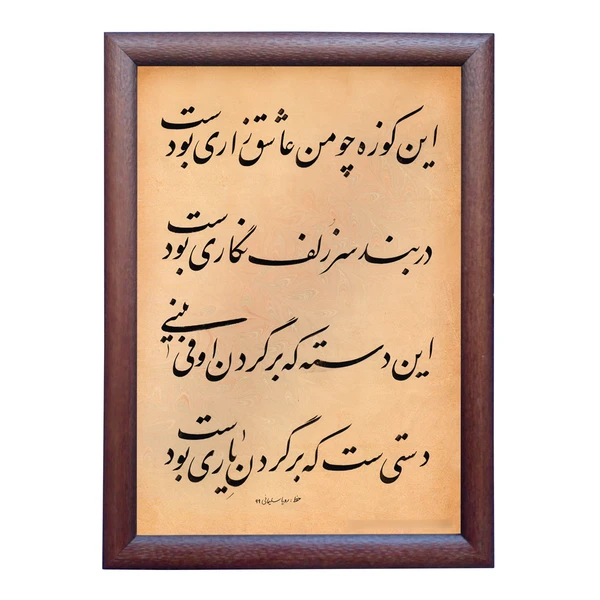 این کوزه چو من عاشق زاری بودست
در بند سر زلف نگاری بودست
این دسته که بر گردن او می‌بینی
دستی ست که بر گردن یاری بودست
خط : رویا سلیمانی ۹۹